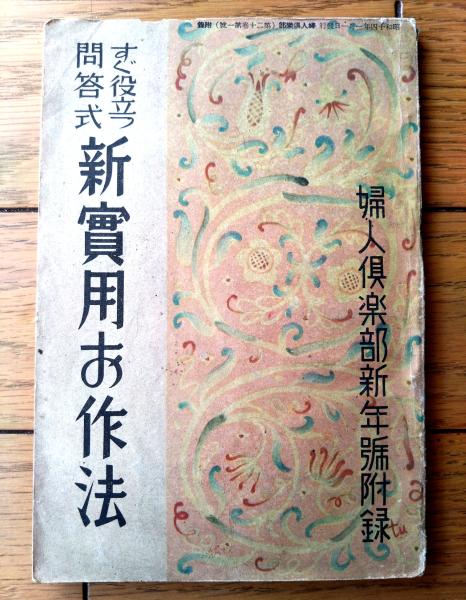 昭和十四年一月一日發行 婦人俱樂部(第二十卷第一號)附錄
婦人俱楽部新年號附録
すぐ役立つ
問答式
新實用お作法
tu